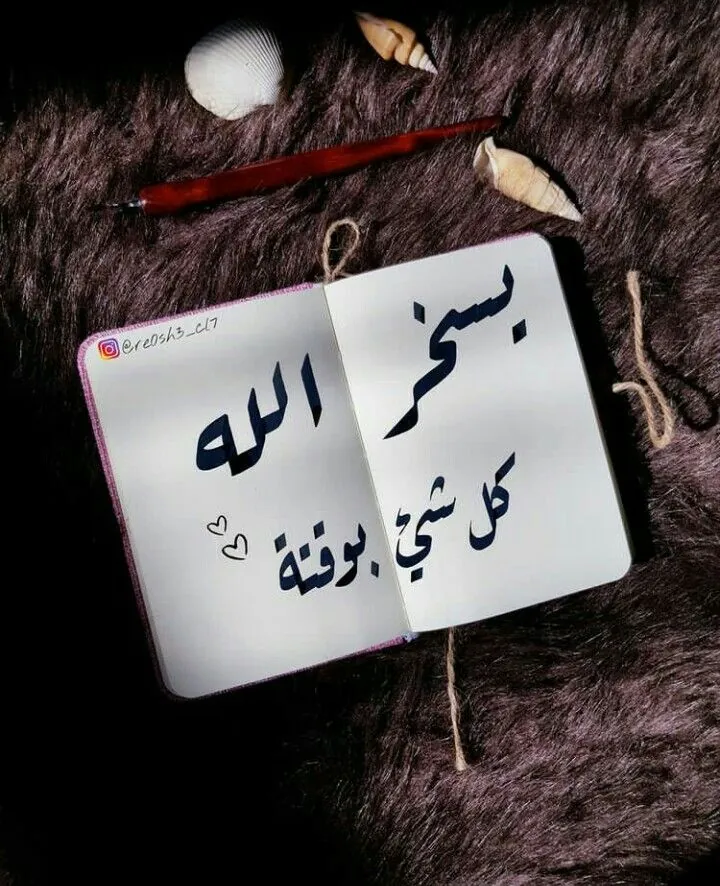 @re0sh3_cl7
يسخر الله
كل شيئ بوقتة